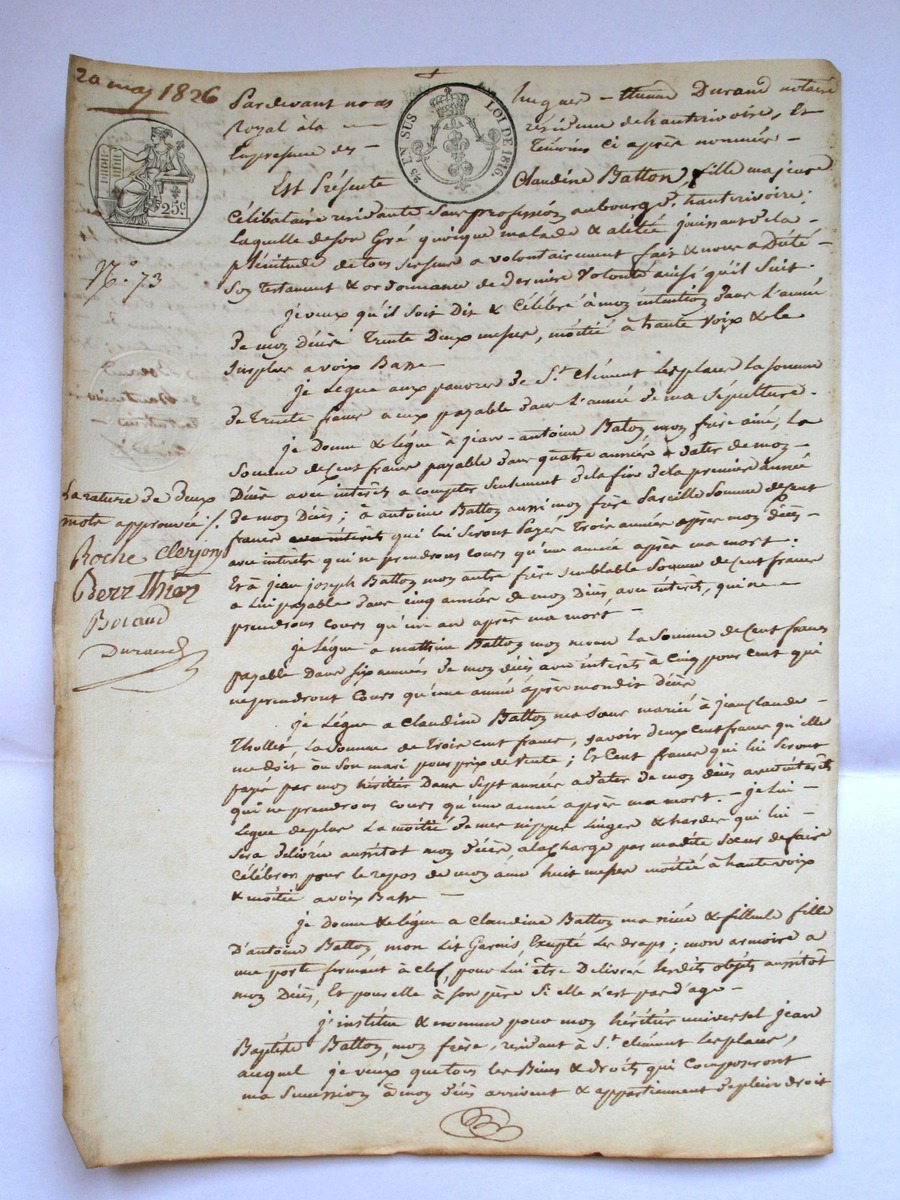 20 may 1826
25 EN SUS LOI DE 1816.
25c
N.o 73
Pardevant nous hugues - Durand notaire
Royal à la résidence de hauterivoire, Et
En presence des - Temoins ci après nommés -
Est Présente Claudine Batton, fille majeure
Célibataire résidante sans profession au bourg d'hauterivoire;
Laquelle de son Gré quoique malade & alitée jouissant de la
plénitude de tous ses sens a volontairement fait & nous a Dicté -
Son Testament & ordonnance de dernière Volonté ainsi qu'il Suit.
je veux qu'il soit Dit & Célébré à mon intention dans L'année
De mon Décès Trente Deux messes, moitié à haute Voix & le
Surplus a voix Basse -
je Legue aux pauvres de St. Clément Les places La somme
de Trente francs a eux payable dans L'année de ma Sépulture.
je Donne & legue à jean-antoine Batton mon frère ainé, La
Somme de Cent francs payable dans quatre années à dater de mon -
Décès avec intérêts a compter seulement de la fin de la première année
de mon Décès; à antoine Batton aussi mon frère Pareille Somme de Cent
francs qui lui seront Payés Trois années après mon décès -
avec interets qui ne prendrons cours qu'une année après ma mort:
Et à jean joseph Batton mon autre frère semblable Somme de Cent francs
a Lui payable dans cinq années de mon Décès, avec intérêts, qui ne -
prendrons Cours qu'un an après ma mort -
je Légue à mathieu Batton mon neveu la Somme de Cent francs
payable Dans six années de mon décès avec intérêts à Cinq pour Cent qui
ne prendront Cours qu'une année après mondit Décès
je Légue a Claudine Batton ma sœur mariée à jean Claude -
Thollet, La Somme de Trois Cent francs, savoir deux Cent francs qu'elle
me doit ou son mari pour prix de Vente; Et Cent francs qui lui seront
payé par mon héritier Dans Sept années a dater de mon décès avec intérêts
qui ne prendrons cours qu'une année après ma mort. - je Lui -
Legue de plus La moitié de mes nippes Linges & hardes qui lui -
Sera délivrée aussitot mon décès a la charge par madite Sœur de faire
Célébrer pour le repos de mon âme huit messes moitié à haute voix
& moitié a voix Basse -
je Donne & légue a Claudine Batton ma nièce & filleule fille
D'antoine Batton, mon Lit Garnis Excepté Les draps; mon armoire a
une porte fermant à clef, pour Lui être Délivrés Lesdits objets aussitôt
mon Décès, Et pour elle à son père Si elle n'est pas d'age -
j'institue & nomme pour mon héritier universel jean
Baptiste Batton, mon frère, résidant à St. Clément Les places,
auquel je veux que tous les Biens & droits qui Composeront
ma Succession à mon décès arrivent & appartiennent de plein droit
La rature de deux
mots approuvée ./.
Roche Clerjon
Berthier
Boiraud
Durand